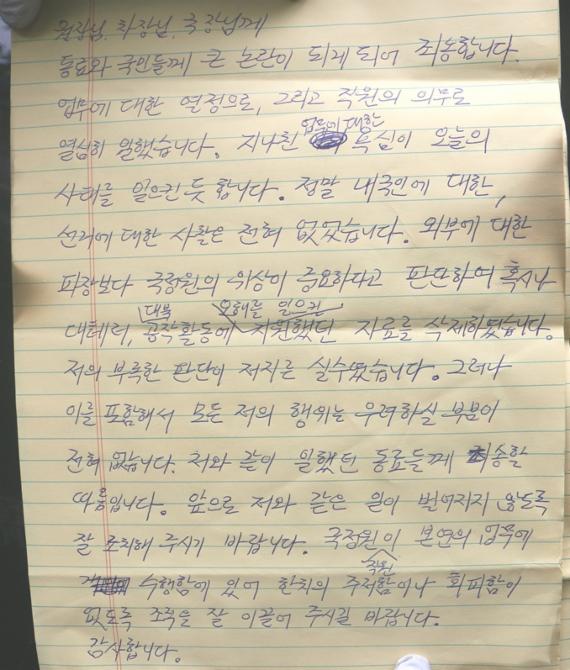 원장님, 차장님, 국장님께
동료와 국민들께 큰 논란이 되게 되어 죄송합니다.
업무에 대한 열정으로, 그리고 직원의 의무로
업무에 대한
열심히 일했습니다. 지나친 욕심이 오늘의
사태를 일으킨 듯 합니다. 정말 내국인에 대한,
선거에 대한 사찰은 전혀 없었습니다. 외부에 대한
파장보다 국정원의 위상이 중요하다고 판단하여 혹시나
대북 오해를 일으킨
대테러, 공작활동에 지원했던 자료를 삭제하였습니다.
저의 부족한 판단이 저지른 실수였습니다. 그러나
이를 포함해서 모든 저의 행위는 우려하실 부분이
전혀 없습니다. 저와 같이 일했던 동료들께 죄송할
따름입니다. 앞으로 저와 같은 일이 벌어지지 않도록
잘 조치해 주시기 바랍니다. 국정원이 본연의 업무에
직원
수행함에 있어 한치의 주저함이나 회피함이
없도록 조직을 잘 이끌어 주시길 바랍니다.
감사합니다.